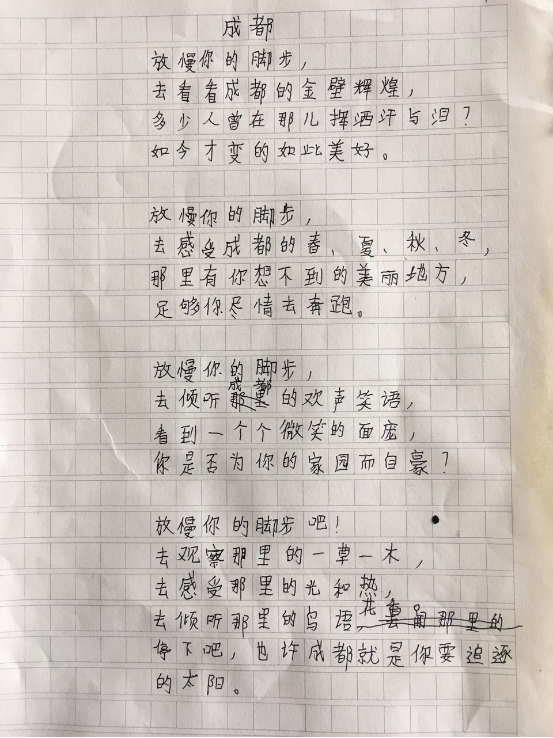 成都
放慢你的脚步，
去看看成都的金壁辉煌，
多少人曾在那儿挥洒汗与泪？
如今才变的如此美好。
放慢你的脚步，
去感受成都的春、夏、秋、冬，
那里有你想不到的美丽地方，
足够你尽情去奔跑。
放慢你的脚步，
去倾听成都的欢声笑语，
看到一个个微笑的面庞，
你是否为你的家园而自豪？
放慢你的脚步吧！
去观察那里的一草一木，
去感受那里的光和热，
去倾听那里的鸟语花香，
停下吧，也许成都就是你要追逐
的太阳。